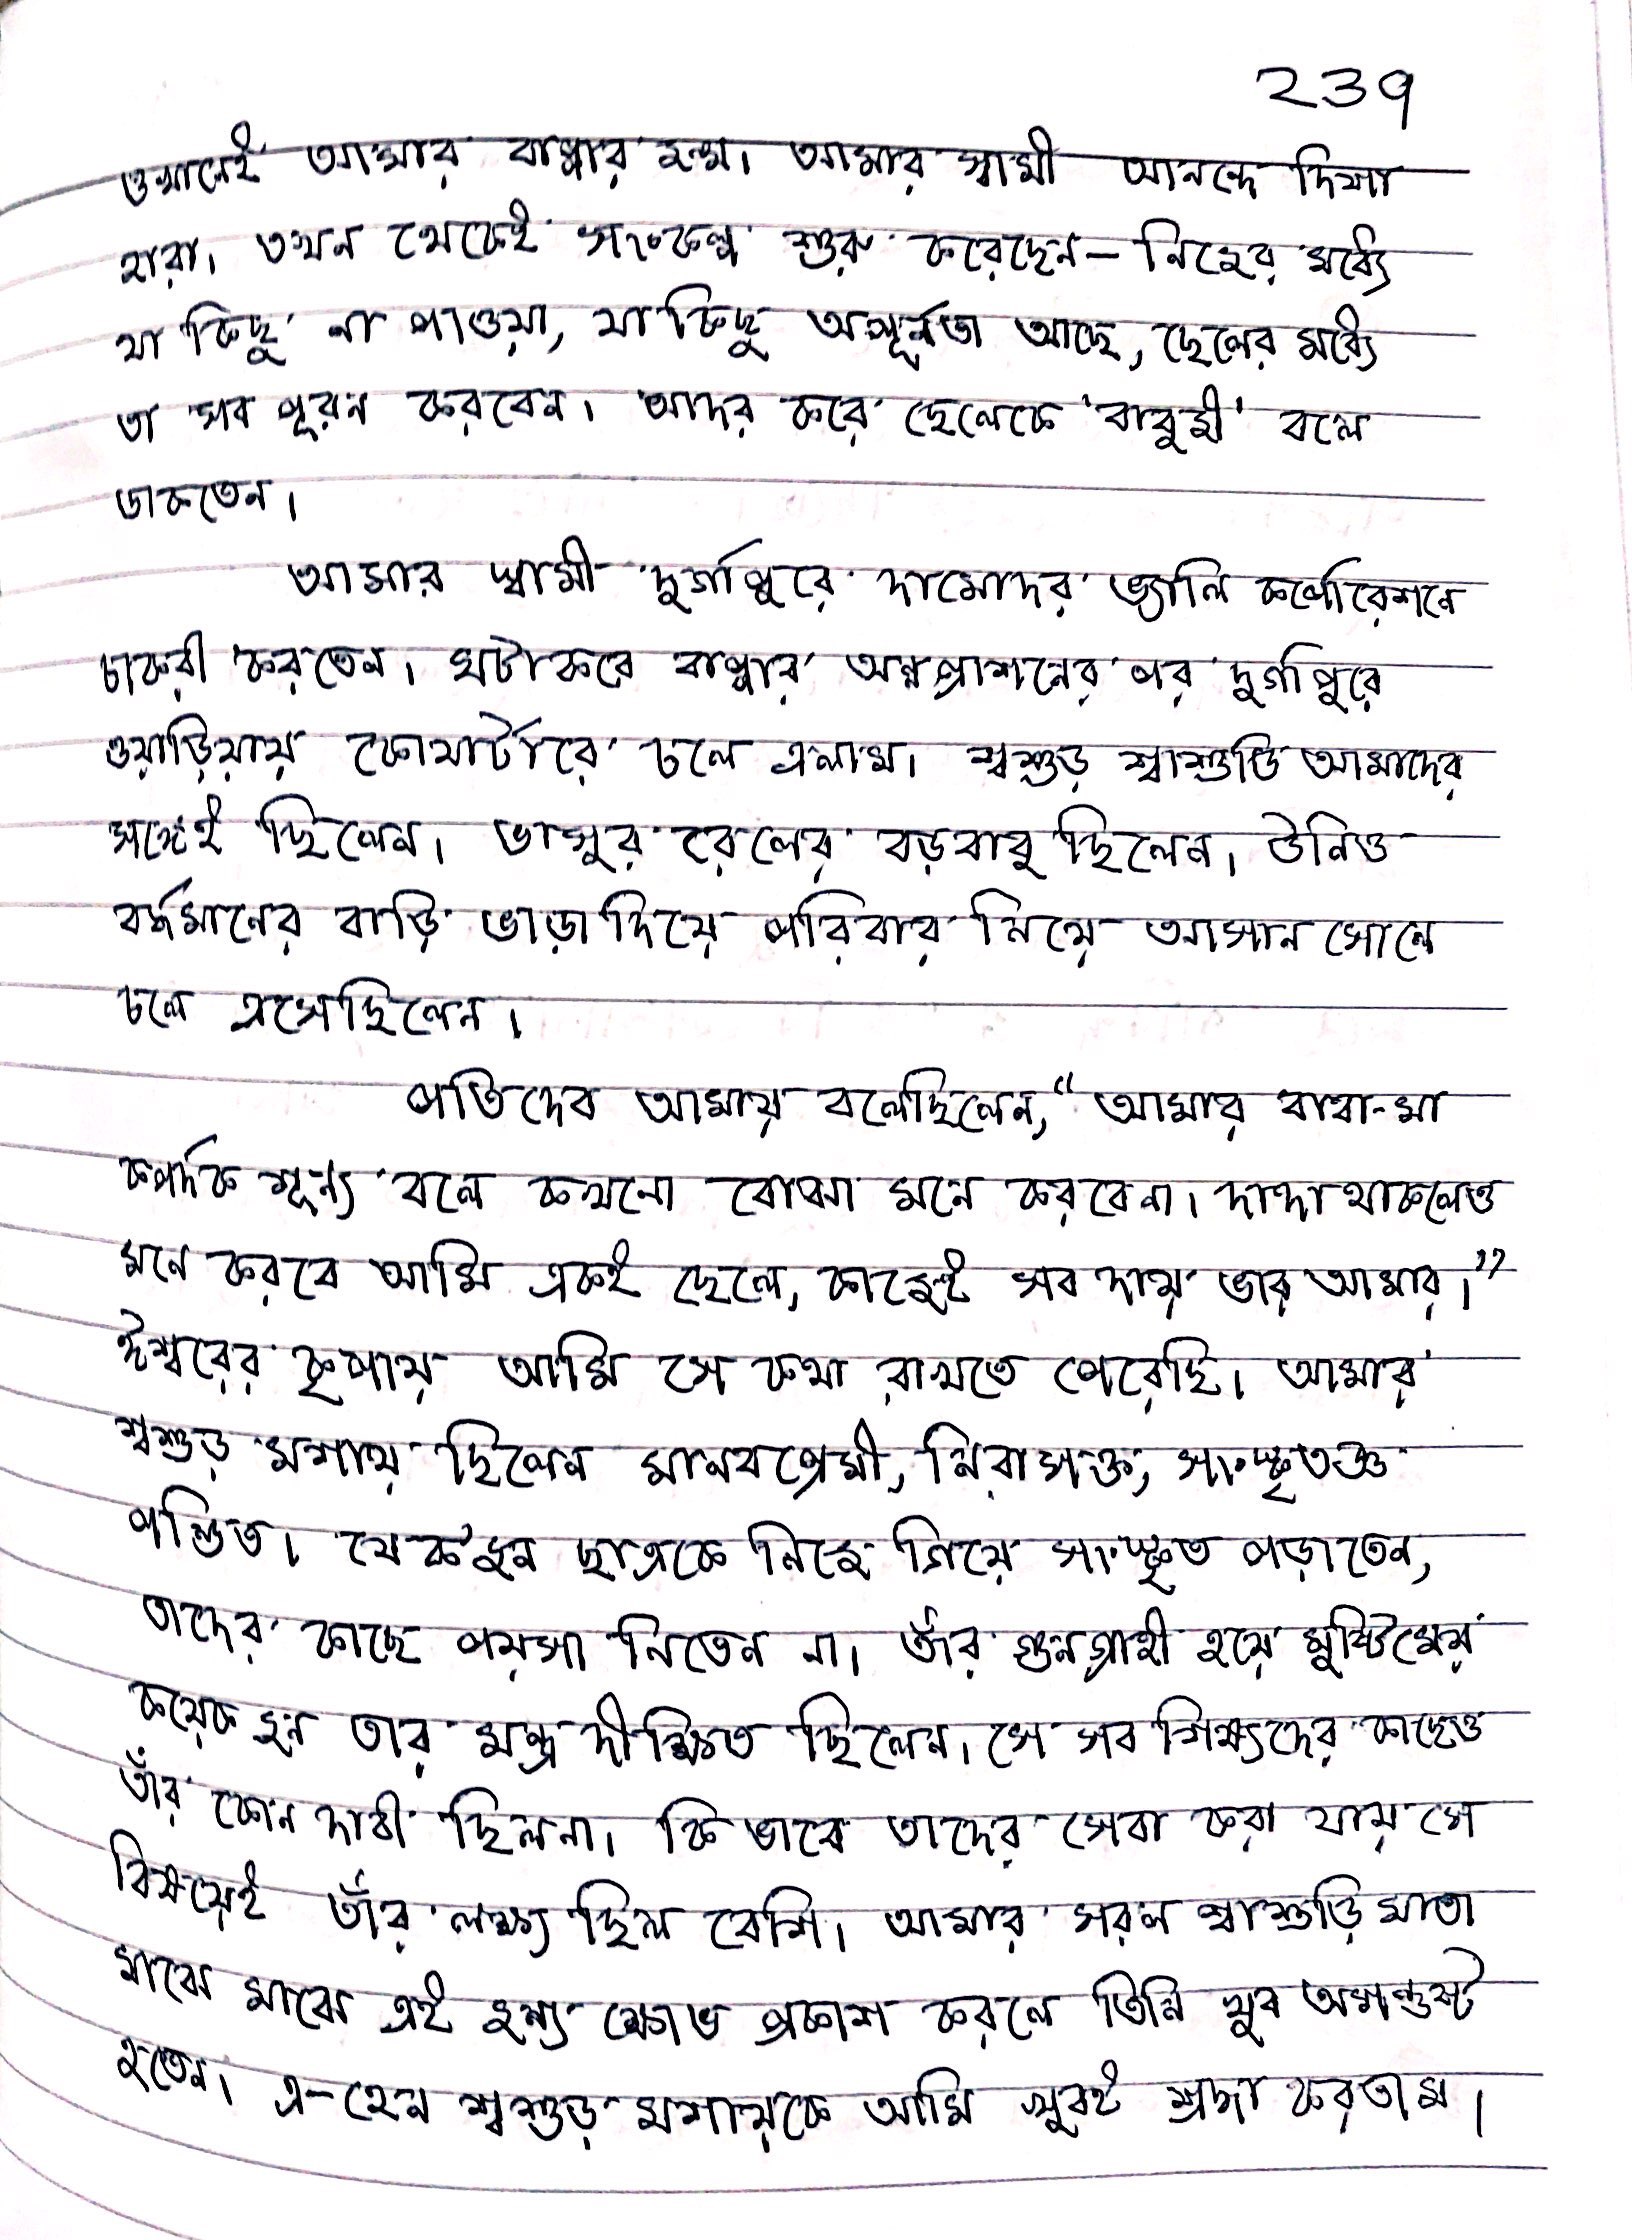 ২৩৭
ওখানেই আমার বাপ্পার জন্ম। আমার স্বামী আনন্দে দিশা
হারা। তখন থেকেই সংকল্প শুরু করেছেন – নিজের মধ্যে
যা কিছু না পাওয়া, যা কিছু অপূর্নতা আছে, ছেলের মধ্যে
তা সব পূরন করবেন। আদর করে ছেলেকে 'বাবুজী' বলে
ডাকতেন।
আমার স্বামী দুর্গাপুরে দামোদর ভ্যালি কর্পোরেশনে
চাকরী করতেন। ঘটাকরে বাপ্পার অন্নপ্রাশনের পর দুর্গাপুরে
ওয়াড়িয়ায় কোয়ার্টারে চলে এলাম। শ্বশুড় শ্বাশুড়ি আমাদের
সঙ্গেই ছিলেন। ভাসুর রেলের বড়বাবু ছিলেন। উনিও
বর্দ্ধমানের বাড়ি ভাড়া দিয়ে পরিবার নিয়ে আসান সোলে
চলে এসেছিলেন।
পতিদেব আমায় বলেছিলেন, “আমার বাবা-মা
কপর্দক শূন্য বলে কখনো বোঝা মনে করবেনা। দাদা থাকলেও
মনে করবে আমি একই ছেলে, কাজেই সব দায় ভার আমার।”
ঈশ্বরের কৃপায় আমি সে কথা রাখতে পেরেছি। আমার
শ্বশুড় মশায় ছিলেন মানবপ্রেমী, নিরাসক্ত, সংস্কৃতজ্ঞ
পন্ডিত। যে ক'জন ছাত্রকে নিজে গিয়ে সংস্কৃত পড়াতেন,
তাদের কাছে পয়সা নিতেন না। তাঁর গুনগ্রাহী হয়ে মুষ্টিমেয়
কয়েক জন তার মন্ত্র দীক্ষিত ছিলেন। সে সব শিষ্যদের কাছেও
তাঁর কোন দাবী ছিলনা। কি ভাবে তাদের সেবা করা যায় সে
বিষয়েই তাঁর লক্ষ্য ছিল বেশি। আমার সরল শ্বাশুড়ি মাতা
মাঝে মাঝে এই জন্য ক্ষোভ প্রকাশ করলে তিনি খুব অসন্তুষ্ট
হতেন। এ-হেন শ্বশুড় মশায়কে আমি খুবই শ্রদ্ধা করতাম।